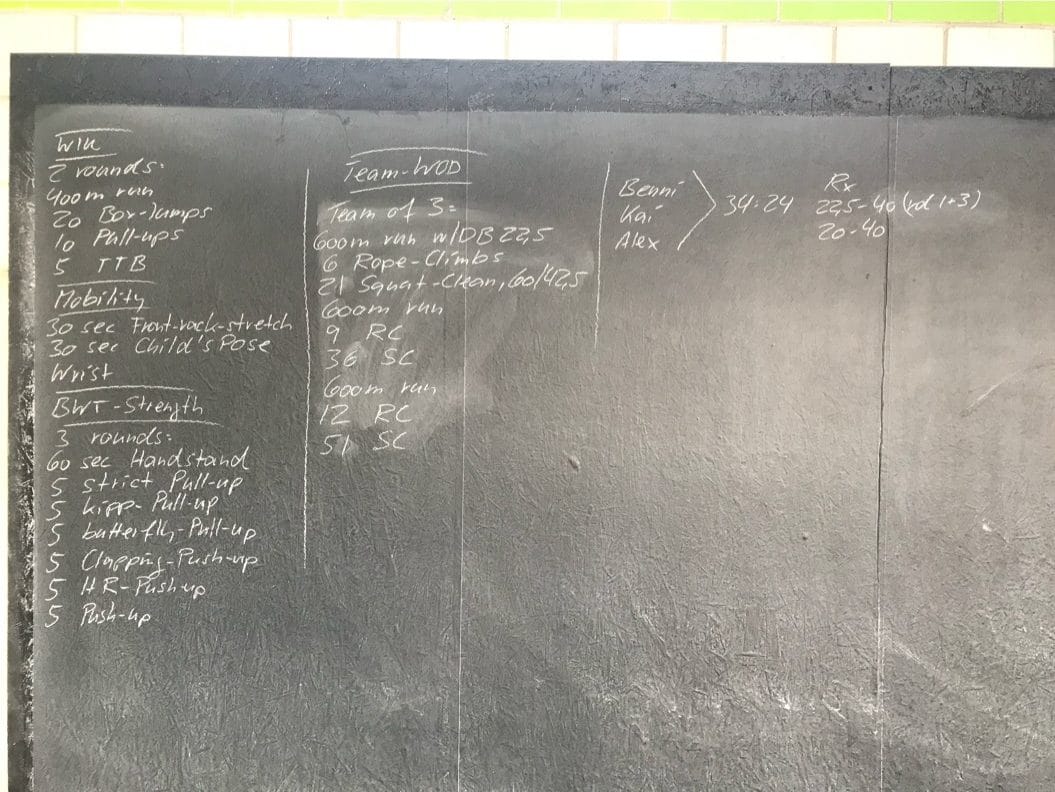 WU
2 rounds:
400m run
20 Box-Jumps
10 Pull-ups
5 TTB
Mobility
30 sec Front-rack-stretch
30 sec Child's Pose
Wrist
BWT-Strength
3 rounds:
60 sec Handstand
5 strict Pull-up
5 kipp-Pull-up
5 butterfly-Pull-up
5 Clapping-Push-up
5 HR-Push-up
5 Push-up
Team-WOD
Team of 3:
600m run w/DB 22,5
6 Rope-Climbs
21 Squat-Clean, 60/42,5
600m run
9 RC
36 SC
600m run
12 RC
51 SC
Benni
Kai
Alex
34:24
Rx
22,5-40 (rd 1+3)
20-40